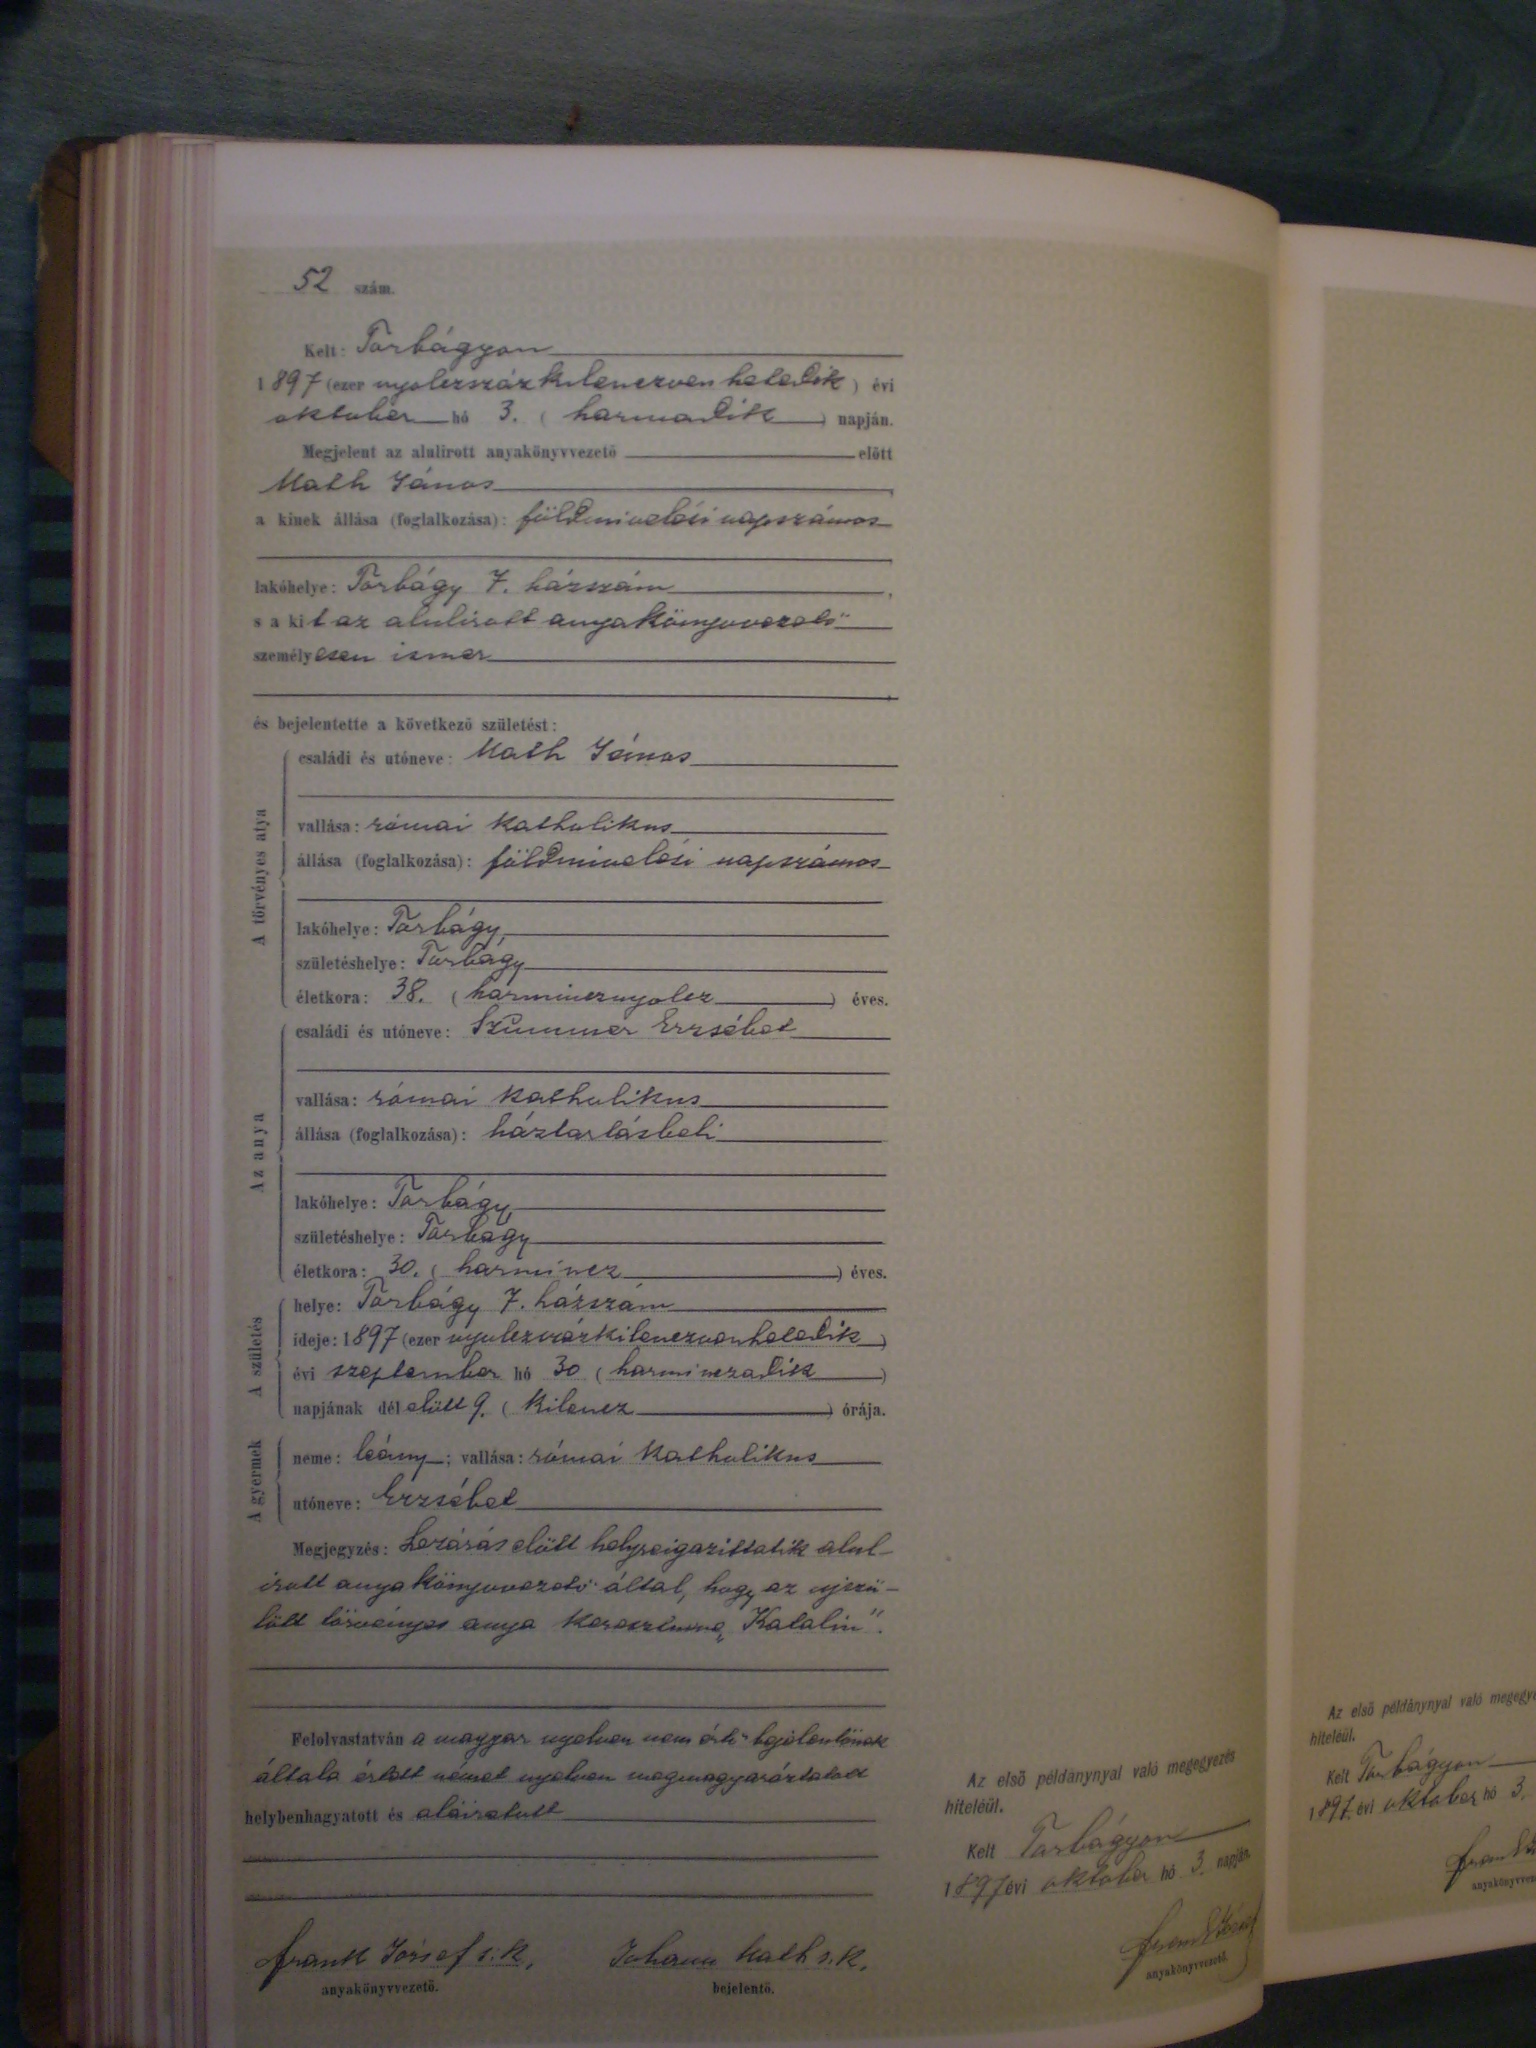 52 szám.
Kelt: Torbágyon
1897 (ezer nyolczszázkilenczvenhetedik) évi
oktober hó 3. (harmadik) napján.
Megjelent az alulirott anyakönyvvezető előtt
Math János,
a kinek állása (foglalkozása): földmivelési napszámos
lakóhelye: Torbágy 7. házszám,
s a kit az alulirott anyakönyvvezető
személyesen ismer
és bejelentette a következő születést:
A törvényes atya
családi és utóneve: Math János
vallása: római katholikus
állása (foglalkozása): földmivelési napszámos
lakóhelye: Torbágy,
születéshelye: Torbágy
életkora: 38. (harmincznyolcz) éves.
Az anya
családi és utóneve: Szummer Erzsébet
vallása: római katholikus
állása (foglalkozása): háztartásbeli
lakóhelye: Torbágy,
születéshelye: Torbágy
életkora: 30. (harmincz) éves.
A születés
helye: Torbágy 7. házszám
ideje: 1897 (ezer nyolczszázkilenczvenhetedik)
évi szeptember hó 30 (harminczadik)
napjának délelőtt 9. (kilencz) órája.
A gyermek
neme: leány; vallása: római katholikus
utóneve: Erzsébet
Megjegyzés: Lezárás előtt helyreigazittatik alul-
irott anyakönyvvezető által, hogy az ujszü-
lött törvényes anya keresztneve „Katalin".
Felolvastatván a magyar nyelven nem értő bejelentőnek
általa értett német nyelven megmagyaráztatott
helybenhagyatott és aláiratott
Frank József s. k.,
anyakönyvvezető.
Johann Math s. k.
bejelentő.
Az első példánynyal való megegyezés
hiteléül.
Kelt Torbágyon
1897 évi oktober hó 3. napján.
Frank József
anyakönyvvezető.
Az első példánynyal való megegye
hiteléül.
Kelt Torbágyon
1897 évi oktober hó 3.
Frank
anyakönyvve